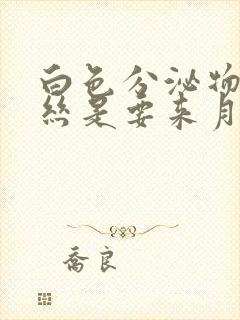 白色分泌物
丝是要来月
乔良